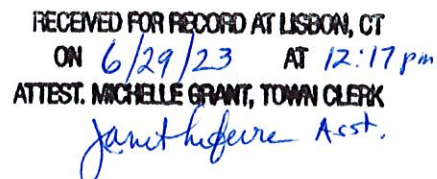 RECEIVED FOR RECORD AT LISBON, CT
ON 6/29/23 AT 12:17 pm
ATTEST. MICHELLE GRANT, TOWN CLERK
Janet Lefevre Asst.